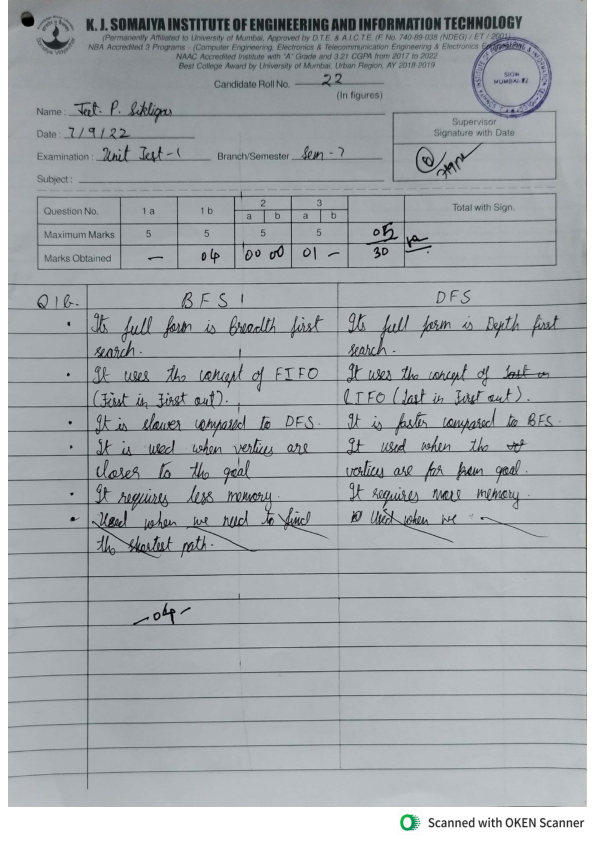 K. J. SOMAIYA INSTITUTE OF ENGINEERING AND INFORMATION TECHNOLOGY
(Permanently Affiliated to University of Mumbai, Approved by D.T.E. & A.I.C.T.E. (F. No. 740-89-038 (NDEG) / ET / 2001)
NBA Accredited 3 Programs - (Computer Engineering, Electronics & Telecommunication Engineering & Electronics Engineering)
NAAC Accredited Institute with "A" Grade and 3.21 CGPA from 2017 to 2022
Best College Award by University of Mumbai, Urban Region, AY 2018-2019
SION
MUMBAI-22
Candidate Roll No. 22
(In figures)
Name : Jeet P.
Date : 7/9/22
Examination : Unit Test-1 Branch/Semester Sem-7
Subject :
Supervisor
Signature with Date
Question No. 1 a 1 b 2 a b 3 a b Total with Sign.
Maximum Marks 5 5 5 5 05
Marks Obtained — 04 00 00 01 - 30
Q1b. BFS DFS
• Its full form is Breadth first Its full form is Depth first
search. search.
• It uses the concept of FIFO It uses the concept of
(First in First out). LIFO (Last in First out).
• It is slower compared to DFS. It is faster compared to BFS.
• It is used when vertices are It used when the
closer to the goal vertices are far from goal.
• It requires less memory. It requires more memory.
• Used when we need to find Used when we
the shortest path.
-04-
Scanned with OKEN Scanner